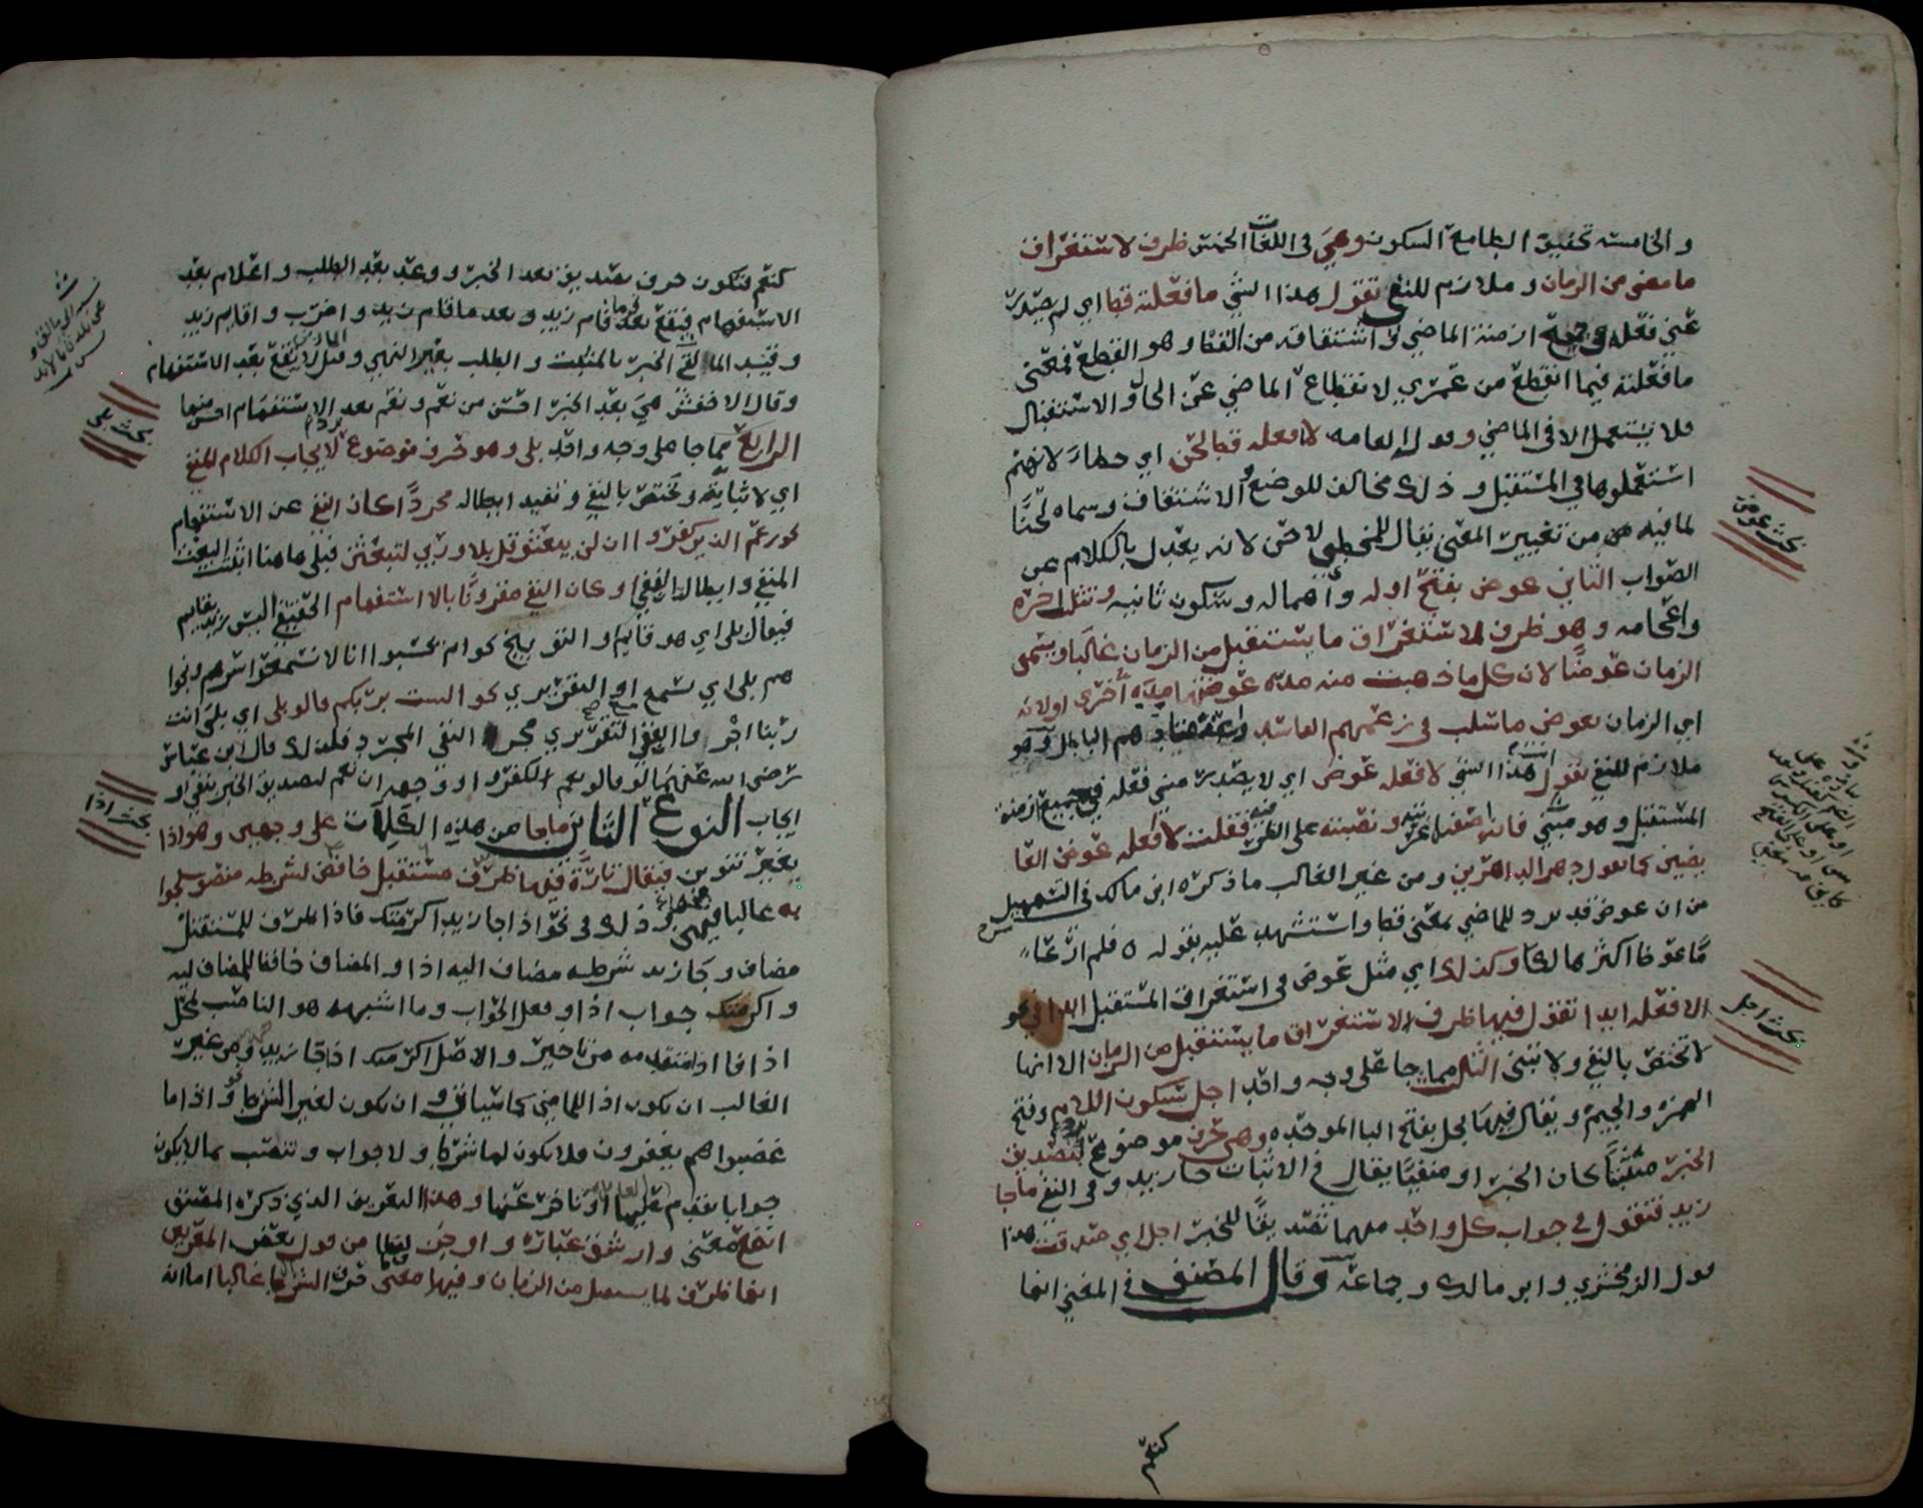 والخامسة تخفيف الطا مع السكون وهي في اللغات الخمس ظرف لاستغراق
ما مضى من الزمان وملازم للنفي تقول هذا الشي ما فعلته قط اي لم يصدر
مني فعله في جميع ازمنة الماضي واشتقاقه من القط وهو القطع فمعنى
ما فعلته فيما انقطع من عمري لانقطاع الماضي عن الحال والاستقبال
فلا يستعمل الا في الماضي وقول العامه لا افعله قط لحن اي خطاء لانهم
استعملوها في المستقبل وذلك مخالف للوضع والاشتقاق وسماه لحنًا
لما فيه من تغيير المعنى يقال للمخطي لاحن لانه يعدل بالكلام عن
الصواب الثاني عوض بفتح اوله واهماله وسكون ثانيه وتثليث اخره
واعجامه وهو ظرف لاستغراق ما يستقبل من الزمان غالبا ويسمى
الزمان عوضًا لان كل ما ذهبت منه مدة عوضتها مدة أخرى او لانه
اي الزمان يعوض ما سلب في زعمهم الفاسد واعتقادهم الباطل وهو
ملازم للنفي تقول انت هذا الشي لا افعله عوض اي لا يصدر مني فعله في جميع ازمنة
المستقبل وهو مبني فان اضفته اعربته ونصبته على الظرفيه فقلت لا افعله عوض العا
يضين كما تقول دهر الداهرين ومن غير الغالب ما ذكره ابن مالك في التسهيل
من ان عوض قد يرد للماضي بمعنى قط واستشهد عليه بقوله ٥ فلم ار عا
مًا عوض اكثر هالكا وكذلك اي مثل عوض في استغراق المستقبل ابدا في نحو
لا افعله ابدا تقول فيها ظرف لاستغراق ما يستقبل من الزمان الا انها
لا تختص بالنفي ولا تبنى الثالث مما جا على وجه واحد اجل بسكون اللام وفتح
الهمزه والجيم ويقال فيها بجل بفتح البا الموحده وهي حرف موضوع لتصديق
الخبر مثبتًا كان الخبر او منفيًا يقال في الاثبات جا زيد وفي النفي ما جا
زيد فتقول في جواب كل واحد منهما تصديقًا للخبر اجل اي صدقت هذا
قول الزمخشري وابن مالك وجماعة وقال المصنف في المغني انها
كنعم
بحث عوض
بحث اجل
كنعم فتكون حرف تصديق بعد الخبر ووعد بعد الطلب واعلام بعد
الاستفهام فيقع بعد نحو ما قام زيد وبعد ما قام زيد واضرب واقايم زيد
وقيد المالقي الخبر بالمثبت والطلب بغير النهي وقيل لا تقع بعد الاستفهام
وقال الاخفش هي بعد الخبر احسن من نعم ونعم بعد الاستفهام احسن منها
الرابع مما جا على وجه واحد بلى وهو حرف موضوع لايجاب الكلام المنفي
اي لاثباته وتختص بالنفي وتفيد ابطاله مجردًا كان النفي عن الاستفهام
نحو زعم الذين كفروا ان لن يبعثوا قل بلى وربي لتبعثن فبلى ها هنا اثبتت البعث
المنفي وابطلت النفي او كان النفي مقرونًا بالاستفهام الحقيقي اليس زيد بقايم
فيقال بلى اي هو قايم او التوبيخي نحو ام يحسبون انا لا نسمع سرهم ونجوا
هم بلى اي نسمع او التقريري نحو الست بربكم قالوا بلى اي بلى انت
ربنا اجروا النفي التقريري مجرى النفي المجرد فلذلك قال ابن عباس
رضي الله عنهما لو قالوا نعم لكفروا ووجهه ان نعم لتصديق الخبر بنفي او
ايجاب النوع الثاني ما جا من هذه الكلمات على وجهين وهو اذا
بغير تنوين فيقال تارة فيها ظرف مستقبل خافض لشرطه منصوب بجوا
به غالبا فيهن وذلك في نحو اذا جا زيد اكرمتك فاذا ظرف للمستقبل
مضاف وجا زيد شرطه مضاف اليه اذا والمضاف خافظ للمضاف اليه
واكرمتك جواب اذا وفعل الجواب وما اشبهه هو الناصب لمحل
اذا متقدمه من تاخير والاصل اكرمتك اذا جا زيد ومن غير
الغالب ان تكون اذا للماضي كما سياتي وان تكون لغير الشرط نحو واذا ما
غضبوا هم يغفرون فلا يكون لها شرط ولا جواب وتنصب بما لا يكون
جوابا تقدم عليها او تاخر عنها وهذا التعريف الذي ذكره المصنف
انفع معنى وارشق عبارة واوجز لفظا من قول بعض المعربين
انها ظرف لما يستقبل من الزمان وفيها معنى حرف الشرط غالبا اما انه
بحث بلى
بحث اذا